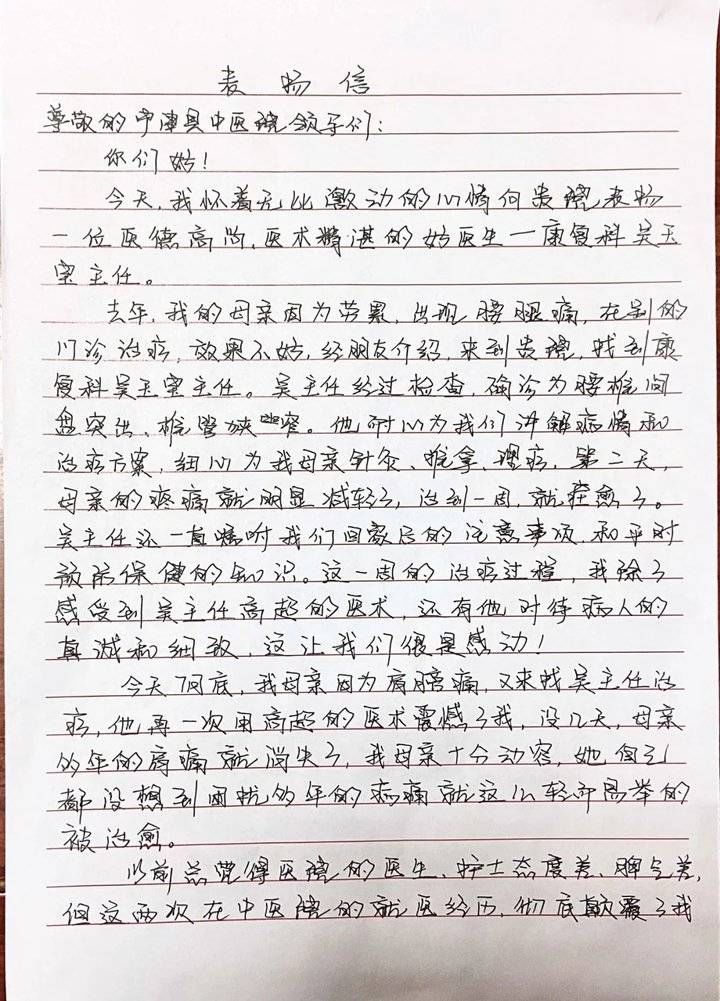 表扬信
尊敬的宁津县中医院领导们：
你们好！
今天，我怀着无比激动的心情向贵院表扬
一位医德高尚，医术精湛的好医生—康复科吴玉
宝主任。
去年，我的母亲因为劳累，出现腰腿痛，在别的
门诊治疗，效果不好，经朋友介绍，来到贵院，找到康
复科吴玉宝主任。吴主任经过检查，确诊为腰椎间
盘突出、椎管狭窄。他耐心为我们讲解病情和
治疗方案，细心为我母亲针灸、推拿、理疗，第二天，
母亲的疼痛就明显减轻了，治到一周，就痊愈了。
吴主任还一直嘱咐我们回家后的注意事项，和平时
预防保健的知识。这一周的治疗过程，我除了
感受到吴主任高超的医术，还有他对待病人的
真诚和细致，这让我们很是感动！
今天7月底，我母亲因为肩膀痛，又来找吴主任治
疗，他再一次用高超的医术震憾了我，没几天，母亲
多年的肩痛就消失了，我母亲十分动容，她自己
都没想到困扰多年的病痛就这么轻而易举的
被治愈。
以前总觉得医院的医生、护士态度差、脾气差，
但这两次在中医院的就医经历，彻底颠覆了我